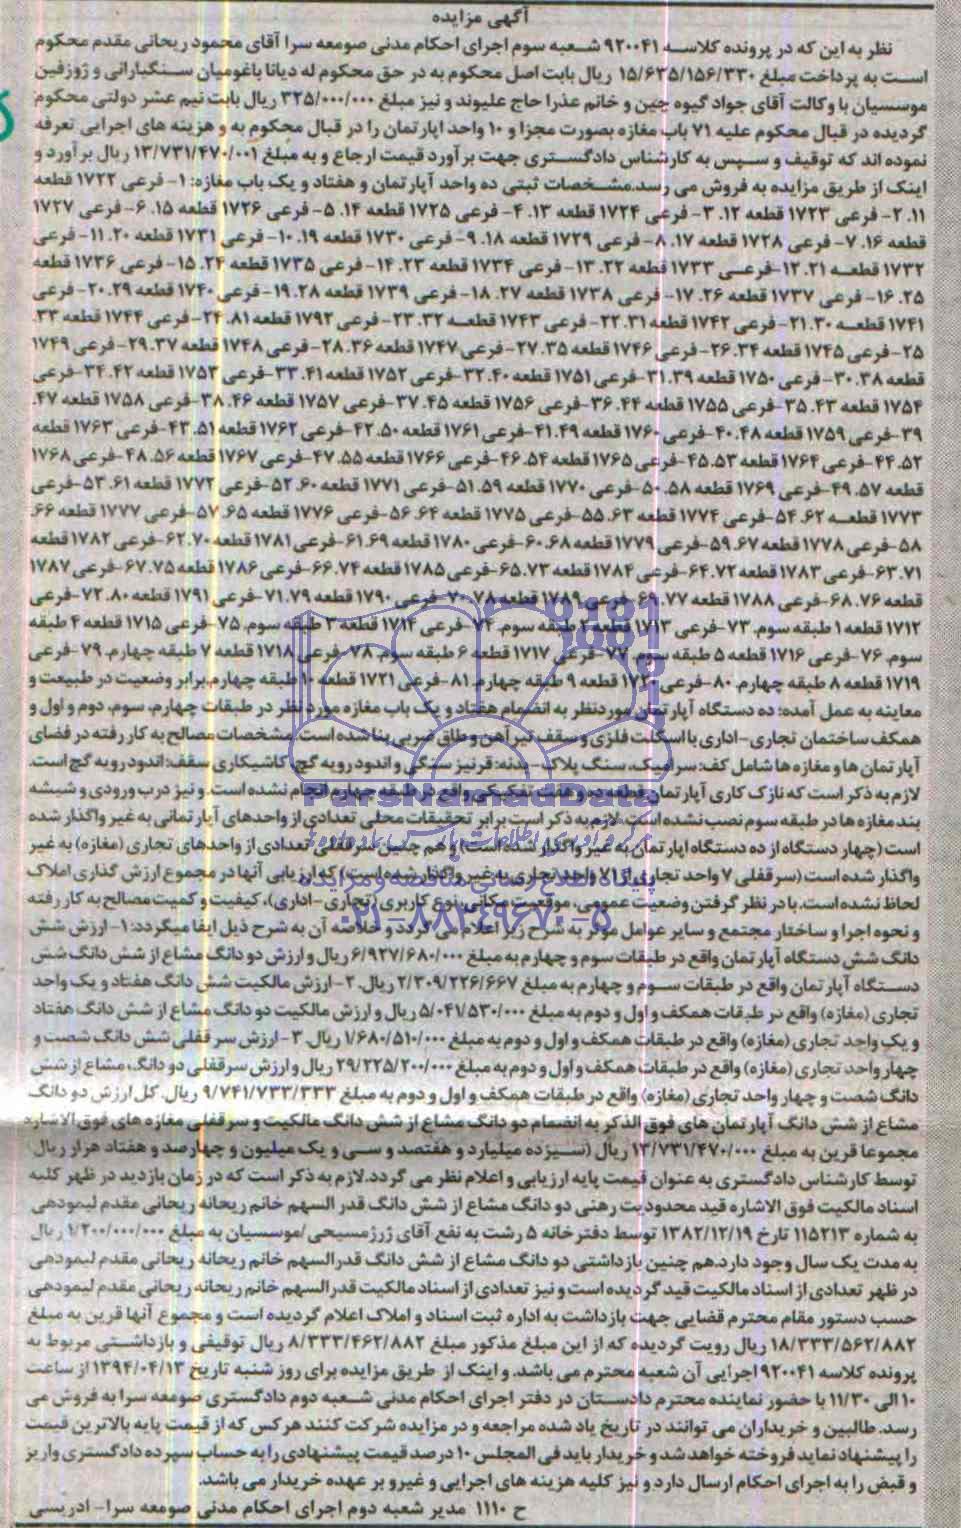 آگهی مزایده
نظر به این که در پرونده کلاسه ۹۲۰۰۴۱ شعبه سوم اجرای احکام مدنی صومعه سرا آقای محمود ریحانی مقدم محکوم
است به پرداخت مبلغ ۱۵/۶۳۵/۱۵۶/۳۳۰ ریال بابت اصل محکوم به در حق محکوم له دیانا باغومیان سنگبارانی و ژوزفین
موسسیان با وکالت آقای جواد گیوه چین و خانم عذرا حاج علیوند و نیز مبلغ ۳۲۵/۰۰۰/۰۰۰ ریال بابت نیم عشر دولتی محکوم
گردیده در قبال محکوم علیه ۷۱ باب مغازه بصورت مجزا و ۱۰ واحد اپارتمان را در قبال محکوم به و هزینه های اجرایی تعرفه
نموده اند که توقیف و سپس به کارشناس دادگستری جهت برآورد قیمت ارجاع و به مبلغ ۱۳/۷۳۱/۴۷۰/۰۰۱ ریال برآورد و
اینک از طریق مزایده به فروش می رسد.مشخصات ثبتی ده واحد آپارتمان و هفتاد و یک باب مغازه: ۱- فرعی ۱۷۲۲ قطعه
۱۱. ۲- فرعی ۱۷۲۳ قطعه ۱۲. ۳- فرعی ۱۷۲۴ قطعه ۱۳. ۴- فرعی ۱۷۲۵ قطعه ۱۴. ۵- فرعی ۱۷۲۶ قطعه ۱۵. ۶- فرعی ۱۷۲۷
قطعه ۱۶. ۷- فرعی ۱۷۲۸ قطعه ۱۷. ۸- فرعی ۱۷۲۹ قطعه ۱۸. ۹- فرعی ۱۷۳۰ قطعه ۱۹. ۱۰- فرعی ۱۷۳۱ قطعه ۲۰. ۱۱- فرعی
۱۷۳۲ قطعه ۲۱. ۱۲-فرعی ۱۷۳۳ قطعه ۲۲. ۱۳- فرعی ۱۷۳۴ قطعه ۲۳. ۱۴- فرعی ۱۷۳۵ قطعه ۲۴. ۱۵- فرعی ۱۷۳۶ قطعه
۲۵. ۱۶- فرعی ۱۷۳۷ قطعه ۲۶. ۱۷- فرعی ۱۷۳۸ قطعه ۲۷. ۱۸- فرعی ۱۷۳۹ قطعه ۲۸. ۱۹- فرعی ۱۷۴۰ قطعه ۲۹. ۲۰- فرعی
۱۷۴۱ قطعه ۳۰. ۲۱- فرعی ۱۷۴۲ قطعه ۳۱. ۲۲- فرعی ۱۷۴۳ قطعه ۳۲. ۲۳- فرعی ۱۷۹۲ قطعه ۸۱. ۲۴- فرعی ۱۷۴۴ قطعه ۳۳.
۲۵- فرعی ۱۷۴۵ قطعه ۳۴. ۲۶- فرعی ۱۷۴۶ قطعه ۳۵. ۲۷- فرعی ۱۷۴۷ قطعه ۳۶. ۲۸- فرعی ۱۷۴۸ قطعه ۳۷. ۲۹- فرعی ۱۷۴۹
قطعه ۳۸. ۳۰- فرعی ۱۷۵۰ قطعه ۳۹. ۳۱-فرعی ۱۷۵۱ قطعه ۴۰. ۳۲-فرعی ۱۷۵۲ قطعه ۴۱. ۳۳-فرعی ۱۷۵۳ قطعه ۴۲. ۳۴-فرعی
۱۷۵۴ قطعه ۴۳. ۳۵-فرعی ۱۷۵۵ قطعه ۴۴. ۳۶-فرعی ۱۷۵۶ قطعه ۴۵. ۳۷-فرعی ۱۷۵۷ قطعه ۴۶. ۳۸-فرعی ۱۷۵۸ قطعه ۴۷.
۳۹-فرعی ۱۷۵۹ قطعه ۴۸. ۴۰-فرعی ۱۷۶۰ قطعه ۴۹. ۴۱-فرعی ۱۷۶۱ قطعه ۵۰. ۴۲-فرعی ۱۷۶۲ قطعه ۵۱. ۴۳-فرعی ۱۷۶۳ قطعه
۵۲. ۴۴-فرعی ۱۷۶۴ قطعه ۵۳. ۴۵-فرعی ۱۷۶۵ قطعه ۵۴. ۴۶-فرعی ۱۷۶۶ قطعه ۵۵. ۴۷-فرعی ۱۷۶۷ قطعه ۵۶. ۴۸-فرعی ۱۷۶۸
قطعه ۵۷. ۴۹-فرعی ۱۷۶۹ قطعه ۵۸. ۵۰-فرعی ۱۷۷۰ قطعه ۵۹. ۵۱-فرعی ۱۷۷۱ قطعه ۶۰. ۵۲-فرعی ۱۷۷۲ قطعه ۶۱. ۵۳-فرعی
۱۷۷۳ قطعه ۶۲. ۵۴-فرعی ۱۷۷۴ قطعه ۶۳. ۵۵-فرعی ۱۷۷۵ قطعه ۶۴. ۵۶-فرعی ۱۷۷۶ قطعه ۶۵. ۵۷-فرعی ۱۷۷۷ قطعه ۶۶.
۵۸-فرعی ۱۷۷۸ قطعه ۶۷. ۵۹-فرعی ۱۷۷۹ قطعه ۶۸. ۶۰-فرعی ۱۷۸۰ قطعه ۶۹. ۶۱-فرعی ۱۷۸۱ قطعه ۷۰. ۶۲-فرعی ۱۷۸۲ قطعه
۷۱. ۶۳-فرعی ۱۷۸۳ قطعه ۷۲. ۶۴-فرعی ۱۷۸۴ قطعه ۷۳. ۶۵-فرعی ۱۷۸۵ قطعه ۷۴. ۶۶-فرعی ۱۷۸۶ قطعه ۷۵. ۶۷-فرعی ۱۷۸۷
قطعه ۷۶. ۶۸-فرعی ۱۷۸۸ قطعه ۷۷. ۶۹-فرعی ۱۷۸۹ قطعه ۷۸. ۷۰-فرعی ۱۷۹۰ قطعه ۷۹. ۷۱-فرعی ۱۷۹۱ قطعه ۸۰. ۷۲-فرعی
۱۷۱۲ قطعه ۱ طبقه سوم. ۷۳-فرعی ۱۷۱۳ قطعه ۲ طبقه سوم. ۷۴- فرعی ۱۷۱۴ قطعه ۳ طبقه سوم. ۷۵- فرعی ۱۷۱۵ قطعه ۴ طبقه
سوم. ۷۶- فرعی ۱۷۱۶ قطعه ۵ طبقه سوم. ۷۷- فرعی ۱۷۱۷ قطعه ۶ طبقه سوم. ۷۸- فرعی ۱۷۱۸ قطعه ۷ طبقه چهارم. ۷۹- فرعی
۱۷۱۹ قطعه ۸ طبقه چهارم. ۸۰- فرعی ۱۷۲۰ قطعه ۹ طبقه چهارم. ۸۱- فرعی ۱۷۲۱ قطعه ۱۰ طبقه چهارم.برابر وضعیت در طبیعت و
معاینه به عمل آمده: ده دستگاه آپارتمان موردنظر به انضمام هفتاد و یک باب مغازه مورد نظر در طبقات چهارم، سوم، دوم و اول و
همکف ساختمان تجاری-اداری با اسکلت فلزی و سقف تیرآهن و طاق ضربی بنا شده است. مشخصات مصالح به کار رفته در فضای
آپارتمان ها و مغازه ها شامل کف: سرامیک، سنگ پلاک-بدنه: قرنیز سنگی و اندود رویه گچ، کاشیکاری سقف: اندود رویه گچ است.
لازم به ذکر است که نازک کاری آپارتمان قطعه ده و هفت تفکیکی واقع در طبقه چهارم انجام نشده است. و نیز درب ورودی و شیشه
بند مغازه ها در طبقه سوم نصب نشده است. لازم به ذکر است برابر تحقیقات محلی تعدادی از واحدهای آپارتمانی به غیر واگذار شده
است (چهار دستگاه از ده دستگاه اپارتمان به غیر واگذار شده است) و هم چنین سرقفلی تعدادی از واحدهای تجاری (مغازه) به غیر
واگذار شده است (سرقفلی ۷ واحد تجاری از ۷۱ واحد تجاری به غیر واگذار شده است) که ارزیابی آنها در مجموع ارزش گذاری املاک
لحاظ نشده است. با در نظر گرفتن وضعیت عمومی، موقعیت مکانی، نوع کاربری (تجاری-اداری)، کیفیت و کمیت مصالح به کار رفته
و نحوه اجرا و ساختار مجتمع و سایر عوامل موثر به شرح زیر اعلام می گردد و خلاصه آن به شرح ذیل ایفا میگردد: ۱- ارزش شش
دانگ شش دستگاه آپارتمان واقع در طبقات سوم و چهارم به مبلغ ۶/۹۲۷/۶۸۰/۰۰۰ ریال و ارزش دو دانگ مشاع از شش دانگ شش
دستگاه آپارتمان واقع در طبقات سوم و چهارم به مبلغ ۲/۳۰۹/۲۲۶/۶۶۷ ریال. ۲- ارزش مالکیت شش دانگ هفتاد و یک واحد
تجاری (مغازه) واقع در طبقات همکف و اول و دوم به مبلغ ۵/۰۴۱/۵۳۰/۰۰۰ ریال و ارزش مالکیت دو دانگ مشاع از شش دانگ هفتاد
و یک واحد تجاری (مغازه) واقع در طبقات همکف و اول و دوم به مبلغ ۱/۶۸۰/۵۱۰/۰۰۰ ریال. ۳- ارزش سرقفلی شش دانگ شصت و
چهار واحد تجاری (مغازه) واقع در طبقات همکف و اول و دوم به مبلغ ۲۹/۲۲۵/۲۰۰/۰۰۰ ریال و ارزش سرقفلی دو دانگ مشاع از شش
دانگ شصت و چهار واحد تجاری (مغازه) واقع در طبقات همکف و اول و دوم به مبلغ ۹/۷۴۱/۷۳۳/۳۳۳ ریال. کل ارزش دو دانگ
مشاع از شش دانگ آپارتمان های فوق الذکر به انضمام دو دانگ مشاع از شش دانگ مالکیت و سرقفلی مغازه های فوق الاشاره
مجموعا قرین به مبلغ ۱۳/۷۳۱/۴۷۰/۰۰۰ ریال (سیزده میلیارد و هفتصد و سی و یک میلیون و چهارصد و هفتاد هزار ریال)
توسط کارشناس دادگستری به عنوان قیمت پایه ارزیابی و اعلام نظر می گردد. لازم به ذکر است که در زمان بازدید در ظهر کلیه
اسناد مالکیت فوق الاشاره قید محدودیت رهنی دو دانگ مشاع از شش دانگ قدر السهم خانم ریحانه ریحانی مقدم لیمودهی
به شماره ۱۱۵۲۱۳ تارخ ۱۳۸۲/۱۲/۱۹ توسط دفترخانه ۵ رشت به نفع آقای ژرژ مسیحی/موسسیان به مبلغ ۱/۲۰۰/۰۰۰/۰۰۰ ریال
به مدت یک سال وجود دارد.هم چنین بازداشتی دو دانگ مشاع از شش دانگ قدرالسهم خانم ریحانه ریحانی مقدم لیمودهی
در ظهر تعدادی از اسناد مالکیت قید گردیده است و نیز تعدادی از اسناد مالکیت قدرالسهم خانم ریحانه ریحانی مقدم لیمودهی
حسب دستور مقام محترم قضایی جهت بازداشت به اداره ثبت اسناد و املاک اعلام گردیده است و مجموع آنها قرین به مبلغ
۱۸/۳۳۳/۵۶۲/۸۸۲ ریال رویت گردیده که از این مبلغ مذکور مبلغ ۸/۳۳۳/۴۶۲/۸۸۲ ریال توقیفی و بازداشتی مربوط به
پرونده کلاسه ۹۲۰۰۴۱ اجرایی آن شعبه محترم می باشد. و اینک از طریق مزایده برای روز شنبه تاریخ ۱۳۹۴/۰۴/۱۳ از ساعت
۱۰ الی ۱۱/۳۰ با حضور نماینده محترم دادستان در دفتر اجرای احکام مدنی شعبه دوم دادگستری صومعه سرا به فروش می
رسد. طالبین و خریداران می توانند در تاریخ یاد شده مراجعه و در مزایده شرکت کنند هرکس که از قیمت پایه بالاترین قیمت
را پیشنهاد نماید فروخته خواهد شد و خریدار باید فی المجلس ۱۰ درصد قیمت پیشنهادی را به حساب سپرده دادگستری واریز
و قبض را به اجرای احکام ارسال دارد و نیز کلیه هزینه های اجرایی و غیرو بر عهده خریدار می باشد.
ح ۱۱۱۰ مدیر شعبه دوم اجرای احکام مدنی صومعه سرا- ادریسی
ParsNamadData
پایگاه اطلاع رسانی مناقصه و مزایده
۰۲۱-۸۸۳۴۹۶۷۰-۵